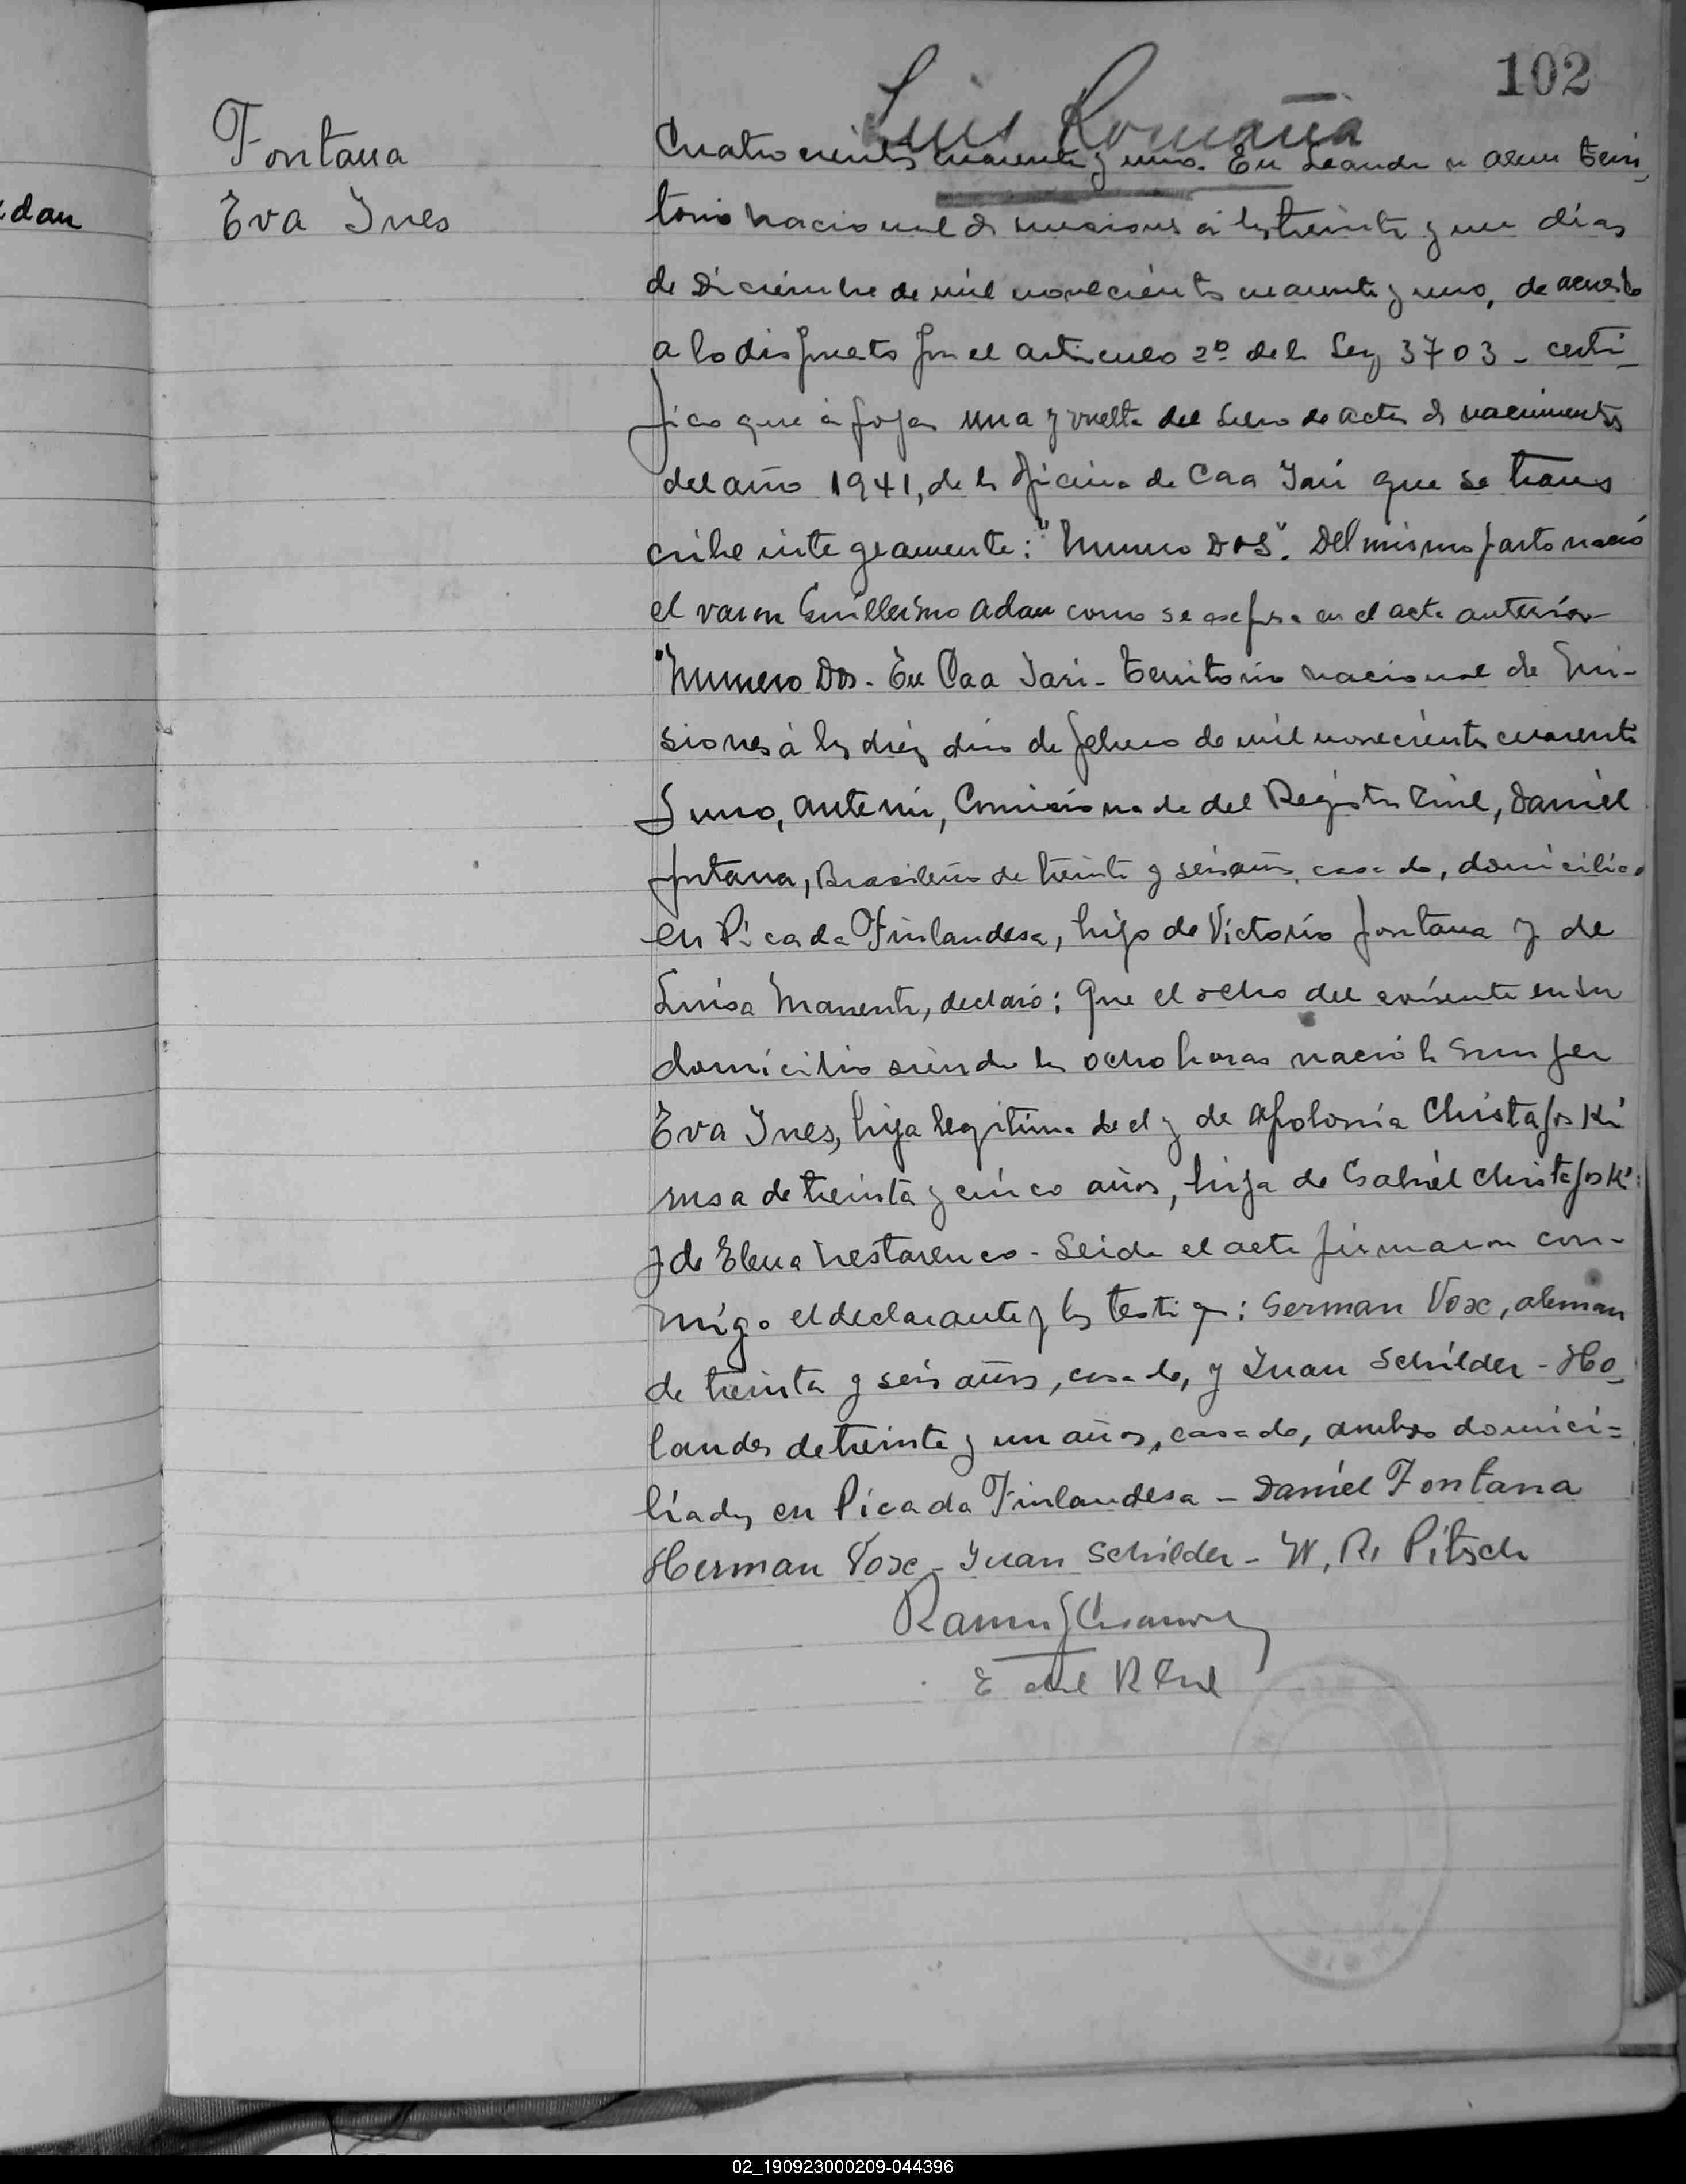 102
Luis Romaña
Fontana
Eva Ines
dan
Cuatrocientos cuarenta y uno. En Leandro n alem terri_
torio nacional de misiones á los treinta y un días
de Diciembre de mil novecientos cuarenta y uno, de acuerdo
a lo dispuesto por el articulo 2º de la Ley 3703 - certi_
fico que á fojas una y vuelta del Libro de actas de nacimientos
del año 1941, de la oficina de Caa Yari que se trans
cribe integramente: "Numero DOS". Del mismo parto nació
el varon Guillermo Adan como se expresa en el acta anterior
"Numero Dos - En Caa Yari - territorio nacional de Mi-
siones á los diez dias de febrero de mil novecientos cuarenta
y uno, ante mi, Comisionado del Registro Civil, Daniel
fontana, Brasileño de treinta y seis años, casado, domicilio
en Picada Finlandesa, hijo de Victorio fontana y de
Luisa Manente, declaró: Que el ocho del corriente en su
domicilio siendo las ocho horas nació la mujer
Eva Ines, hija legitima de el y de Apolonia Christafoski
rusa de treinta y cinco años, hija de Gabriel Christafoski
y de Elena Nestarenco - Leida el acta firmaron con-
migo el declarante y los testigos: German Vox, aleman
de treinta y seis años, casado, y Juan Schilder - Ho_
landes de treinta y un años, casado, ambos domici=
liados en Picada Finlandesa - Daniel Fontana
Herman Vox - Juan Schilder - W. R. Pitsch
E del R Civil
02_190923000209-044396